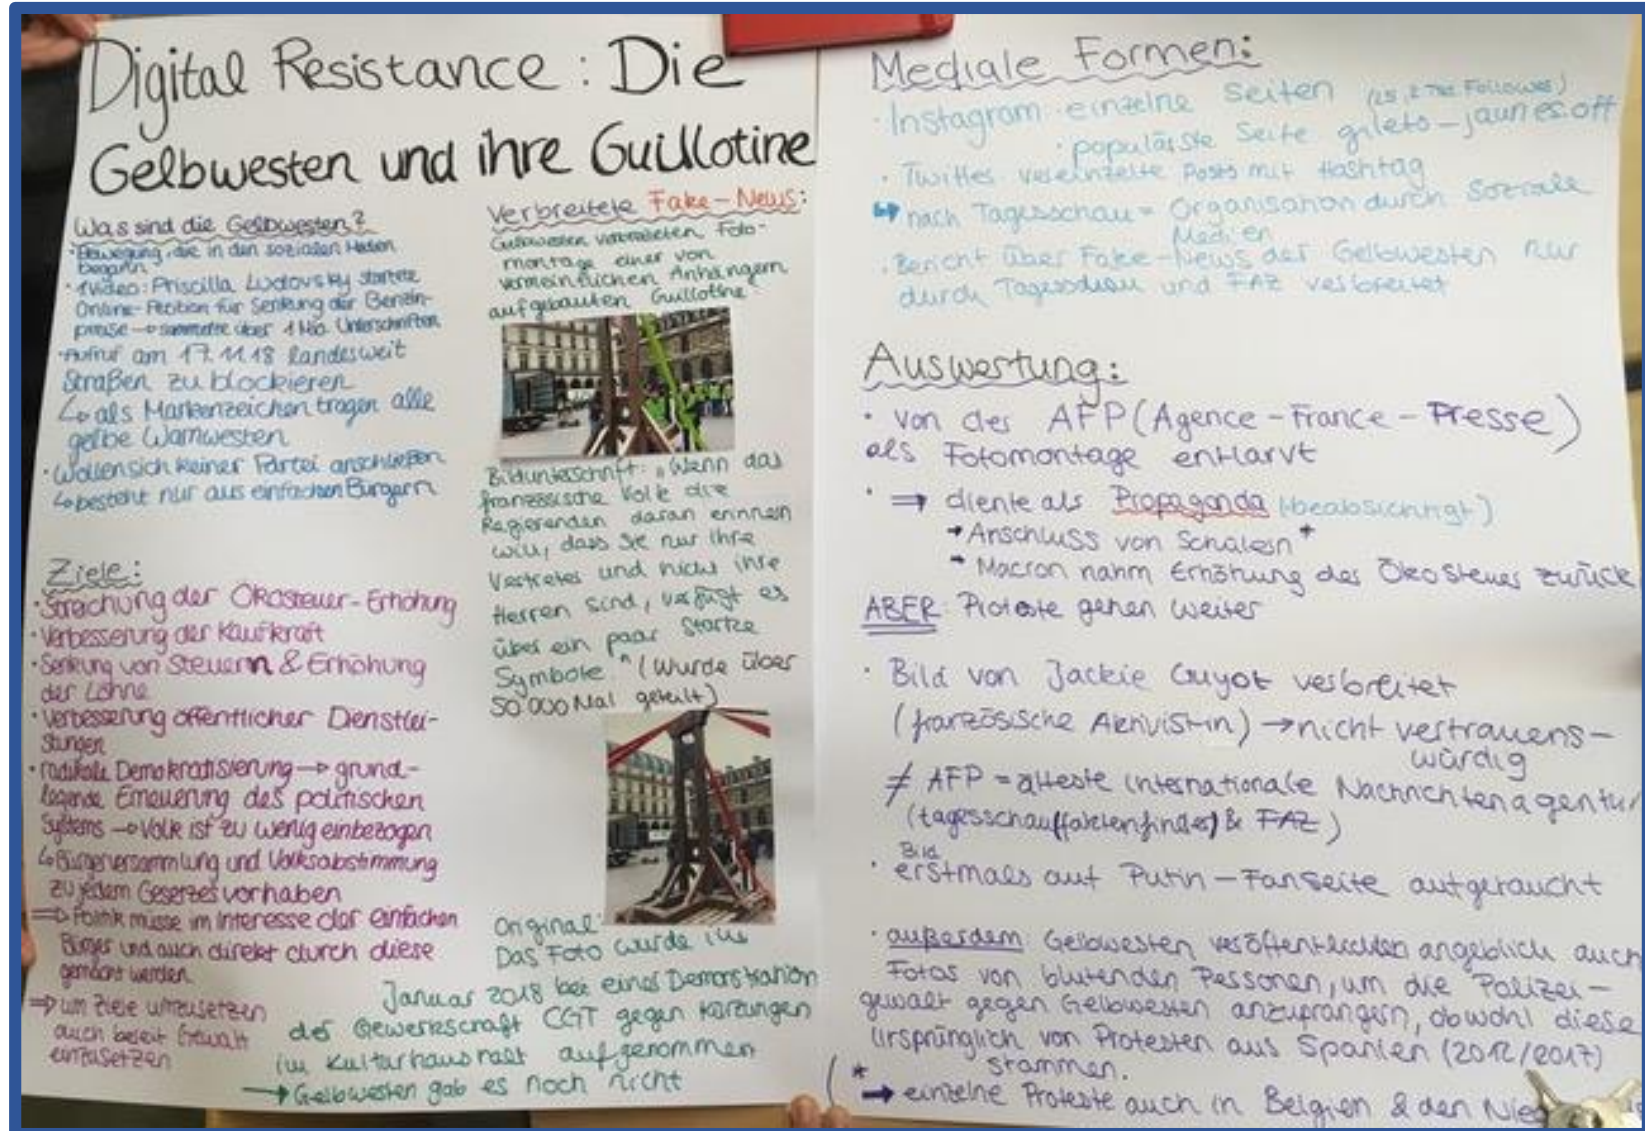 Digital Resistance: Die
Gelbwesten und ihre Guillotine
Was sind die Gelbwesten?
• Bewegung, die in den sozialen Medien
begann
• Video: Priscilla Ludovsky startete
Online-Petition für Senkung der Benzin-
preise → sammelte über 1 Mio. Unterschriften
• Aufruf am 17.11.18 landesweit
Straßen zu blockieren
↳ als Markenzeichen tragen alle
gelbe Warnwesten
• Wollen sich keiner Partei anschließen
↳ besteht nur aus einfachen Bürgern
Ziele:
• Streichung der Ökosteuer-Erhöhung
• Verbesserung der Kaufkraft
• Senkung von Steuern & Erhöhung
der Löhne
• Verbesserung öffentlicher Dienstlei-
stungen
• radikale Demokratisierung → grund-
legende Erneuerung des politischen
Systems → Volk ist zu wenig einbezogen
↳ Bürgerversammlung und Volksabstimmung
zu jedem Gesetzesvorhaben
⇒ Politik müsse im Interesse der einfachen
Bürger und auch direkt durch diese
gemacht werden
⇒ um Ziele umzusetzen
auch bereit Gewalt
einzusetzen
Verbreitete Fake-News:
Gelbwesten verbreiteten Foto-
montage einer von
vermeintlichen Anhängern
aufgebauten Guillotine
Bildunterschrift: "Wenn das
französische Volk die
Regierenden daran erinnern
will, dass sie nur ihre
Vertreter und nicht ihre
Herren sind, verfügt es
über ein paar starke
Symbole" (Wurde über
50 000 Mal geteilt)
Original:
Das Foto wurde im
Januar 2018 bei einer Demonstration
der Gewerkschaft CGT gegen Kürzungen
im Kulturhaushalt aufgenommen
→ Gelbwesten gab es noch nicht
Mediale Formen:
• Instagram • einzelne Seiten
• populärste Seite gilets-jaunes.off
(25,2 Tsd. Follower)
• Twitter vereinzelte Posts mit Hashtag
↳ nach Tagesschau = Organisation durch Soziale
Medien
• Bericht über Fake-News der Gelbwesten nur
durch Tagesschau und FAZ verbreitet
Auswertung:
• von der AFP (Agence-France-Presse)
als Fotomontage entlarvt
• ⇒ diente als Propaganda (beabsichtigt)
→ Anschluss von Schülern *
→ Macron nahm Erhöhung der Ökosteuer zurück
ABER: Proteste gehen weiter
• Bild von Jackie Guyot verbreitet
(französische Aktivistin) → nicht vertrauens-
würdig
≠ AFP = älteste internationale Nachrichtenagentur
(tagesschau(faktenfinder) & FAZ)
• Bild
erstmals auf Putin-Fanseite aufgetaucht
• außerdem Gelbwesten veröffentlichten angeblich auch
Fotos von blutenden Personen, um die Polizei-
gewalt gegen Gelbwesten anzuprangern, obwohl diese
ursprünglich von Protesten aus Spanien (2012/2017)
stammen.
( *
→ einzelne Proteste auch in Belgien & den